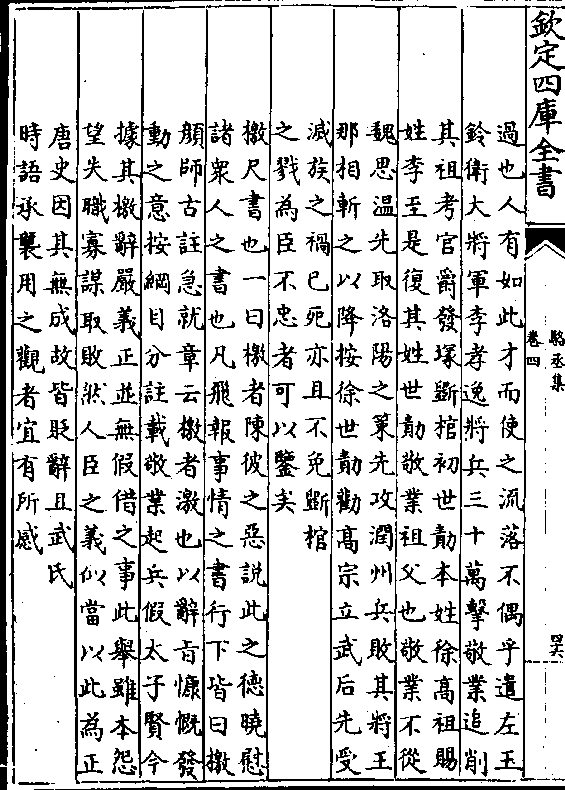 欽定四庫全書
駱丞集
卷四
四六
過也人有如此才而使之流落不偶乎遣左玉
鈐衛大將軍李孝逸將兵三十萬擊敬業追削
其祖考官爵發塚斲棺初世勣本姓徐高祖賜
姓李至是復其姓世勣敬業祖父也敬業不從
魏思溫先取洛陽之策先攻潤州兵敗其將王
那相斬之以降按徐世勣勸髙宗立武后先受
滅族之禍已死亦且不免斲棺
之戮為臣不忠者可以鑒矣
檄尺書也一曰檄者陳彼之惡説此之德曉慰
諸衆人之書也凡飛報事情之書行下皆曰檄
顔師古註急就章云檄者激也以辭㫖慷慨發
動之意按綱目分註載敬業起兵假太子賢今
據其檄辭嚴義正並無假借之事此舉雖本怨
望失職寡謀取敗然人臣之義似當以此為正
唐史因其無成故皆貶辭且武氏
時語承襲用之觀者宜有所感